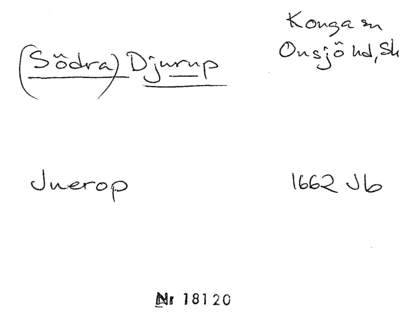 (Södra) Djurup
Konga sn
Onsjö hd, Sk
Juerop
1662 Jb
Nr 18120